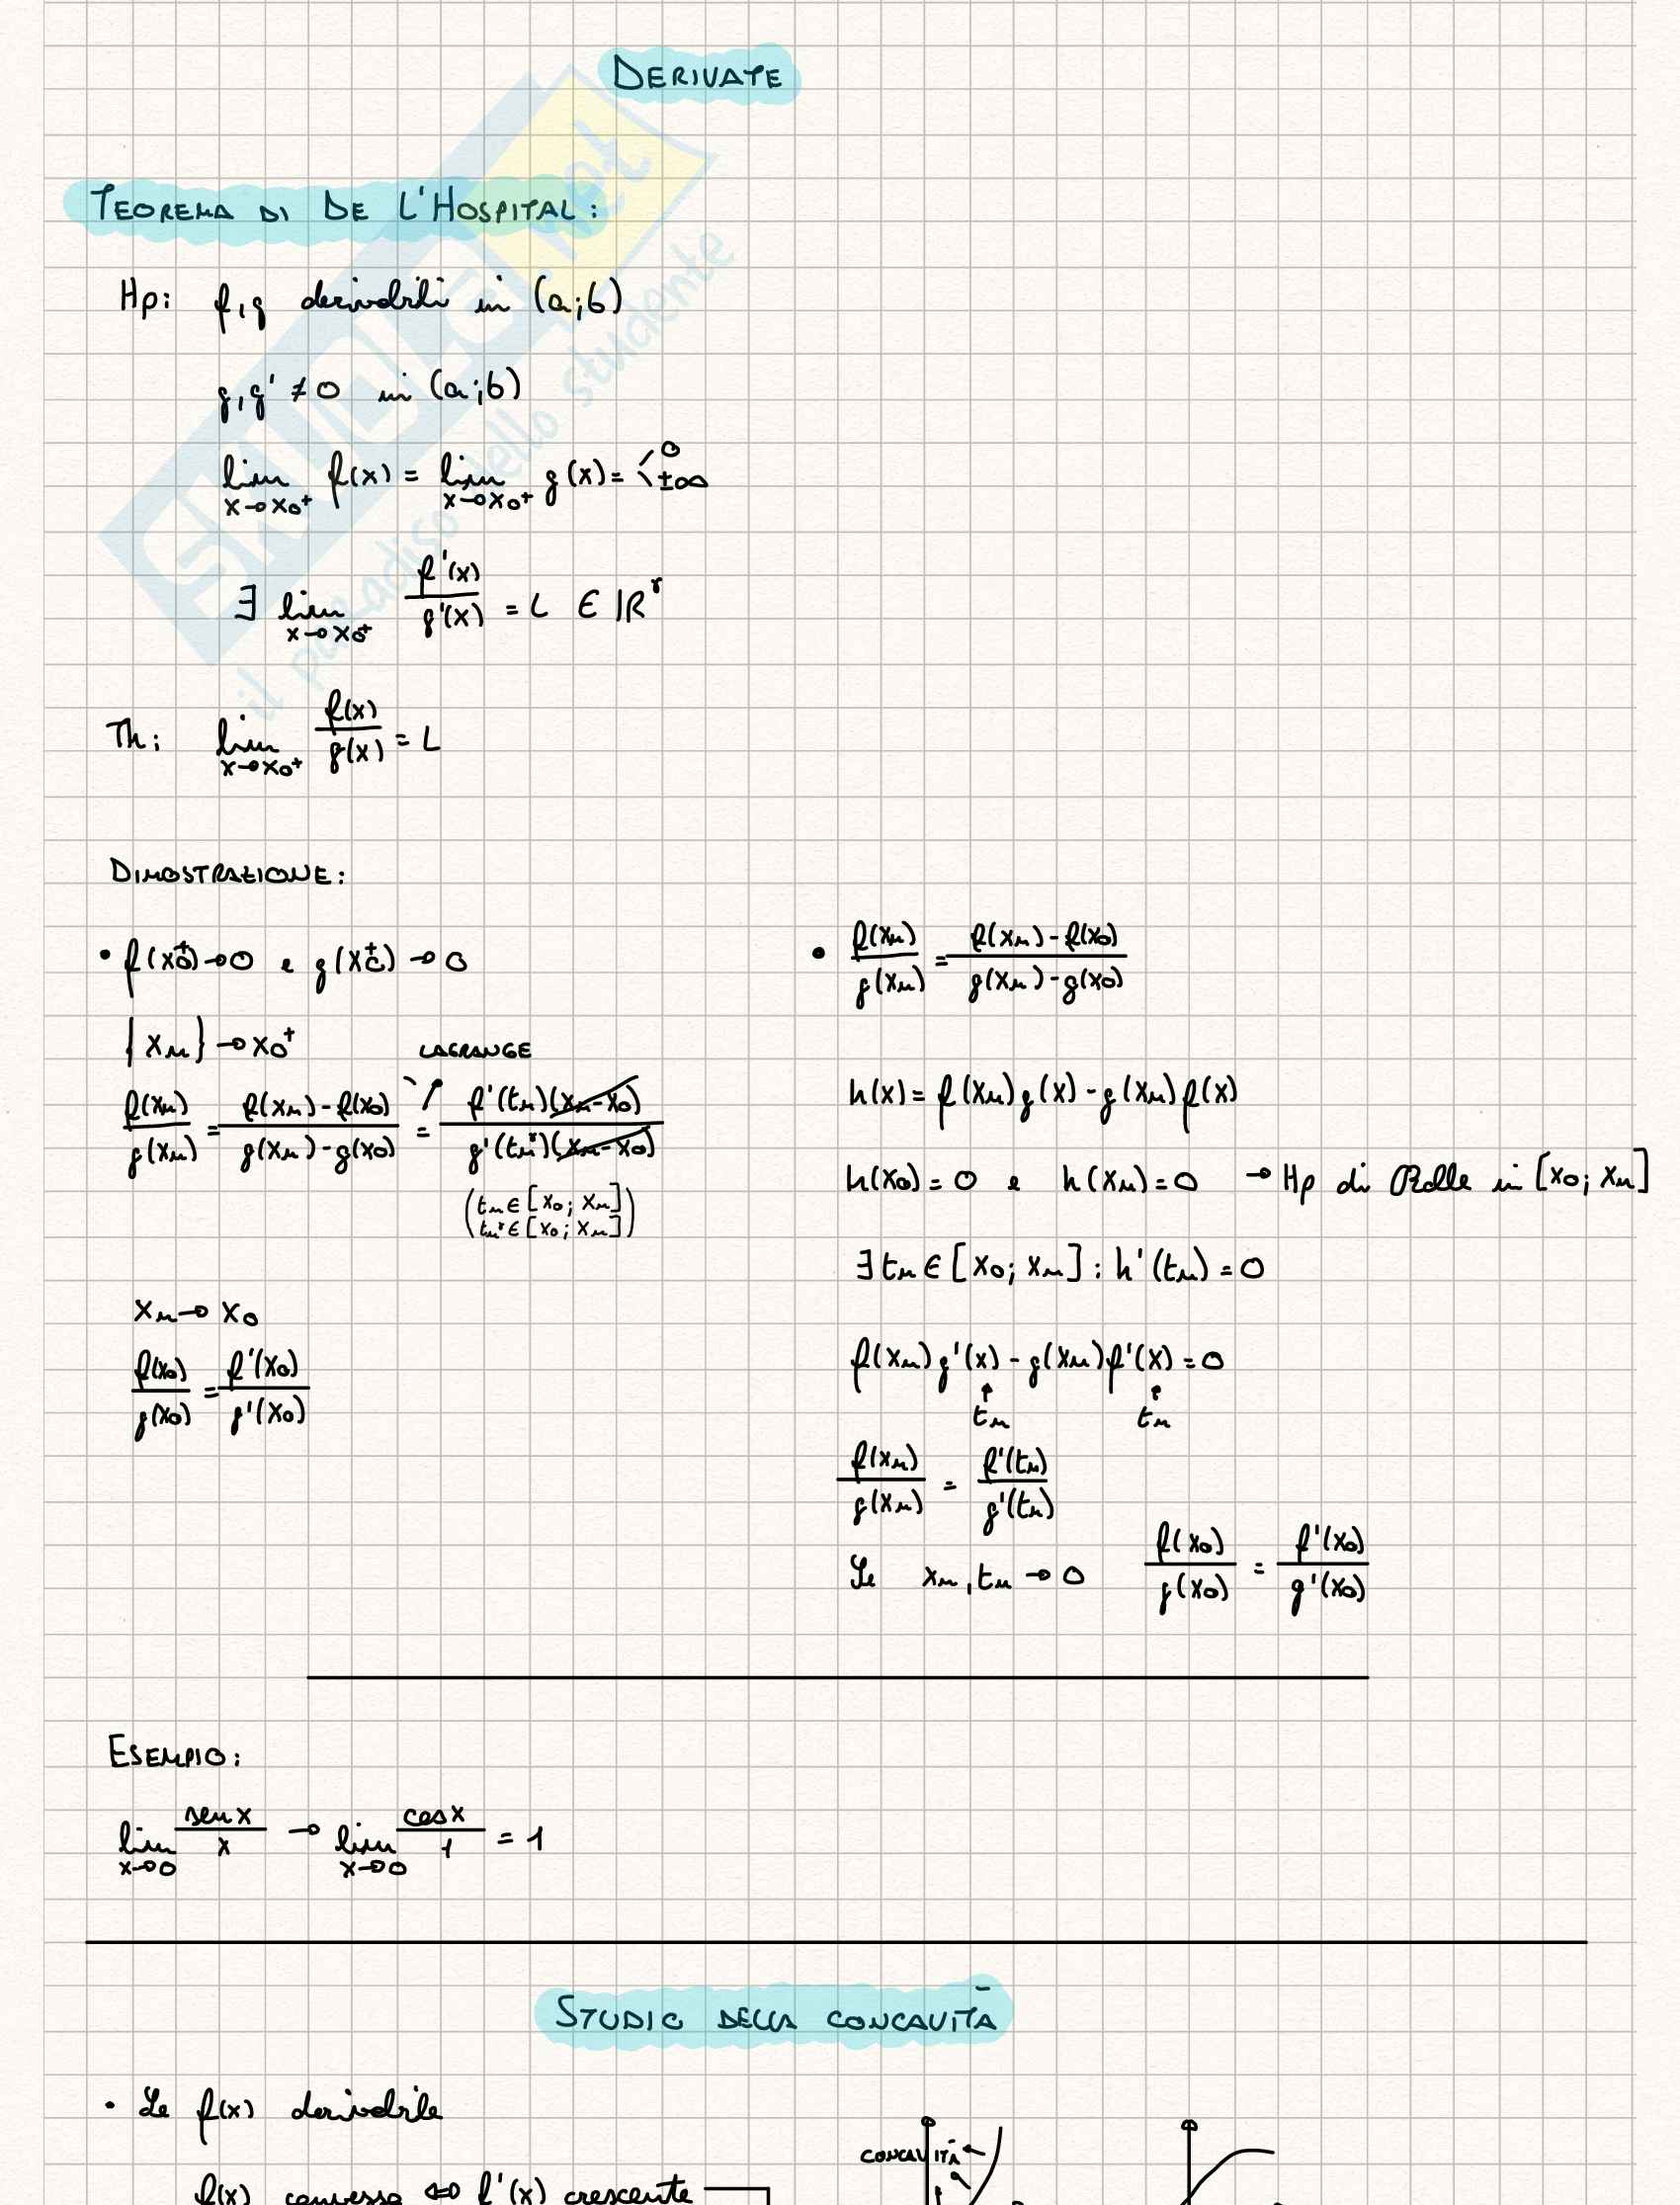 DERIVATE
TEOREMA DI DE L'HOSPITAL:
Hp: f,g derivabili in (a;b)
g,g' ≠ 0 in (a;b)
lim x→x0+ f(x) = lim x→x0+ g(x) = < 0 ±∞
∃ lim x→x0+ f'(x)/g'(x) = L ∈ ℝ*
Th: lim x→x0+ f(x)/g(x) = L
DIMOSTRAZIONE:
• f(x0+)→0 e g(x0+)→0
{xn}→x0+
LAGRANGE
f(xn)/g(xn) = f(xn)-f(x0)/g(xn)-g(x0) = f'(tn)(xn-x0)/g'(tn*)(xn-x0)
(tn ∈ [x0; xn]
tn* ∈ [x0; xn])
xn→x0
f(x0)/g(x0) = f'(x0)/g'(x0)
• f(xn)/g(xn) = f(xn)-f(x0)/g(xn)-g(x0)
h(x) = f(xn)g(x) - g(xn)f(x)
h(x0) = 0 e h(xn) = 0 → Hp di Rolle in [x0; xn]
∃ tn ∈ [x0; xn] : h'(tn) = 0
f(xn)g'(x) - g(xn)f'(x) = 0
↑ ↑
tn tn
f(xn)/g(xn) = f'(tn)/g'(tn)
Se xn, tn → 0 f(x0)/g(x0) = f'(x0)/g'(x0)
ESEMPIO:
lim x→0 sen x/x → lim x→0 cos x/1 = 1
STUDIO DELLA CONCAVITÀ
• Se f(x) derivabile
CONCAVITÀ
f(x) convessa ⇔ f'(x) crescente
SKUOLA.net
il paradiso dello studente